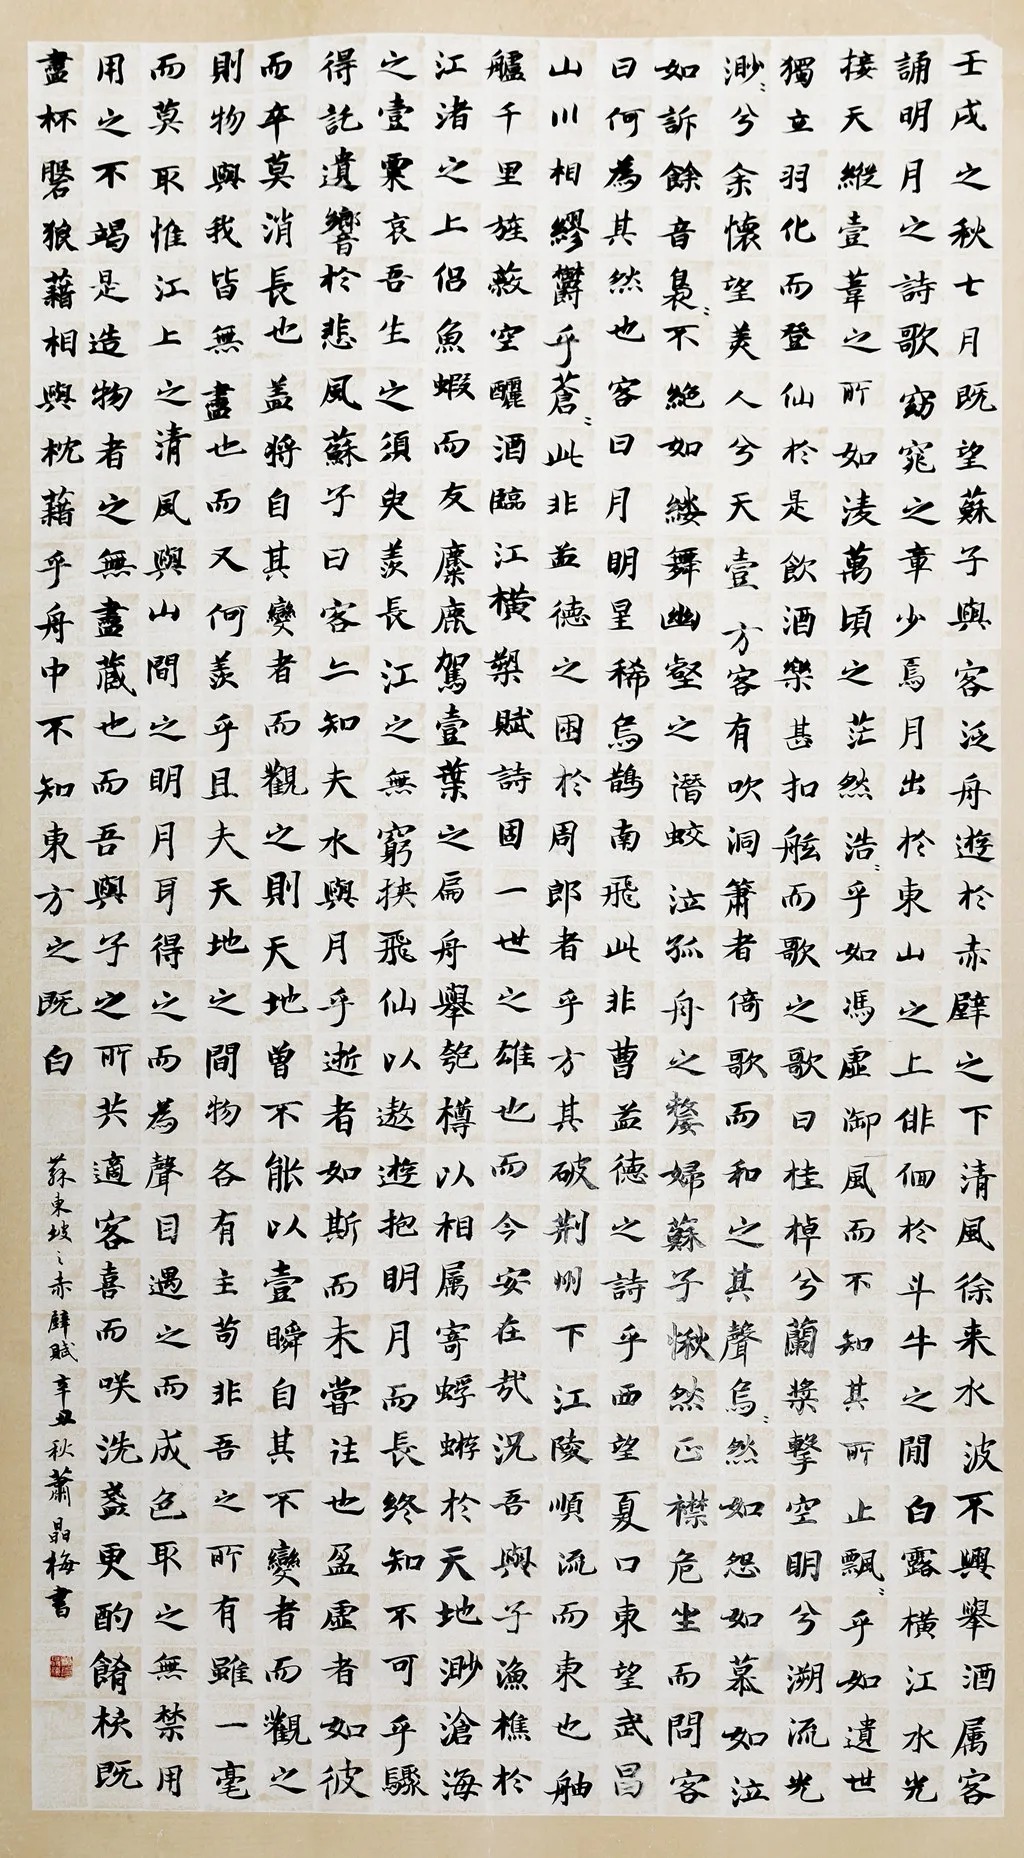 壬戌之秋七月既望蘇子與客泛舟遊於赤壁之下清風徐来水波不興舉酒属客
誦明月之詩歌窈窕之章少焉月出於東山之上俳佪於斗牛之間白露橫江水光
接天縱壹葦之所如凌萬頃之茫然浩〻乎如馮虛御風而不知其所止飄〻乎如遺世
獨立羽化而登仙於是飲酒樂甚扣舷而歌之歌曰桂棹兮蘭槳擊空明兮溯流光
渺〻兮余懷望美人兮天壹方客有吹洞簫者倚歌而和之其聲烏〻然如怨如慕如泣
如訴餘音裊〻不絕如縷舞幽壑之潛蛟泣孤舟之嫠婦蘇子愀然正襟危坐而問客
曰何為其然也客曰月明星稀烏鵲南飛此非曹孟德之詩乎西望夏口東望武昌
山川相繆鬱乎蒼〻此非孟德之困於周郎者乎方其破荊州下江陵順流而東也舳
艫千里旌蔽空釃酒臨江橫槊賦詩固一世之雄也而今安在哉況吾與子漁樵於
江渚之上侶魚蝦而友麋鹿駕壹葉之扁舟舉匏樽以相属寄蜉蝣於天地渺滄海
之壹粟哀吾生之須臾羨長江之無窮挾飛仙以遨遊抱明月而長終知不可乎驟
得託遺響於悲風蘇子曰客亦知夫水與月乎逝者如斯而未嘗往也盈虛者如彼
而卒莫消長也蓋將自其變者而觀之則天地曾不能以壹瞬自其不變者而觀之
則物與我皆無盡也而又何羨乎且夫天地之間物各有主苟非吾之所有雖一毫
而莫取惟江上之清風與山間之明月耳得之而為聲目遇之而成色取之無禁用
用之不竭是造物者之無盡藏也而吾與子之所共適客喜而咲洗盞更酌餚核既
盡杯盤狼藉相與枕藉乎舟中不知東方之既白
蘇東坡之赤壁賦辛丑秋蕭晶梅書